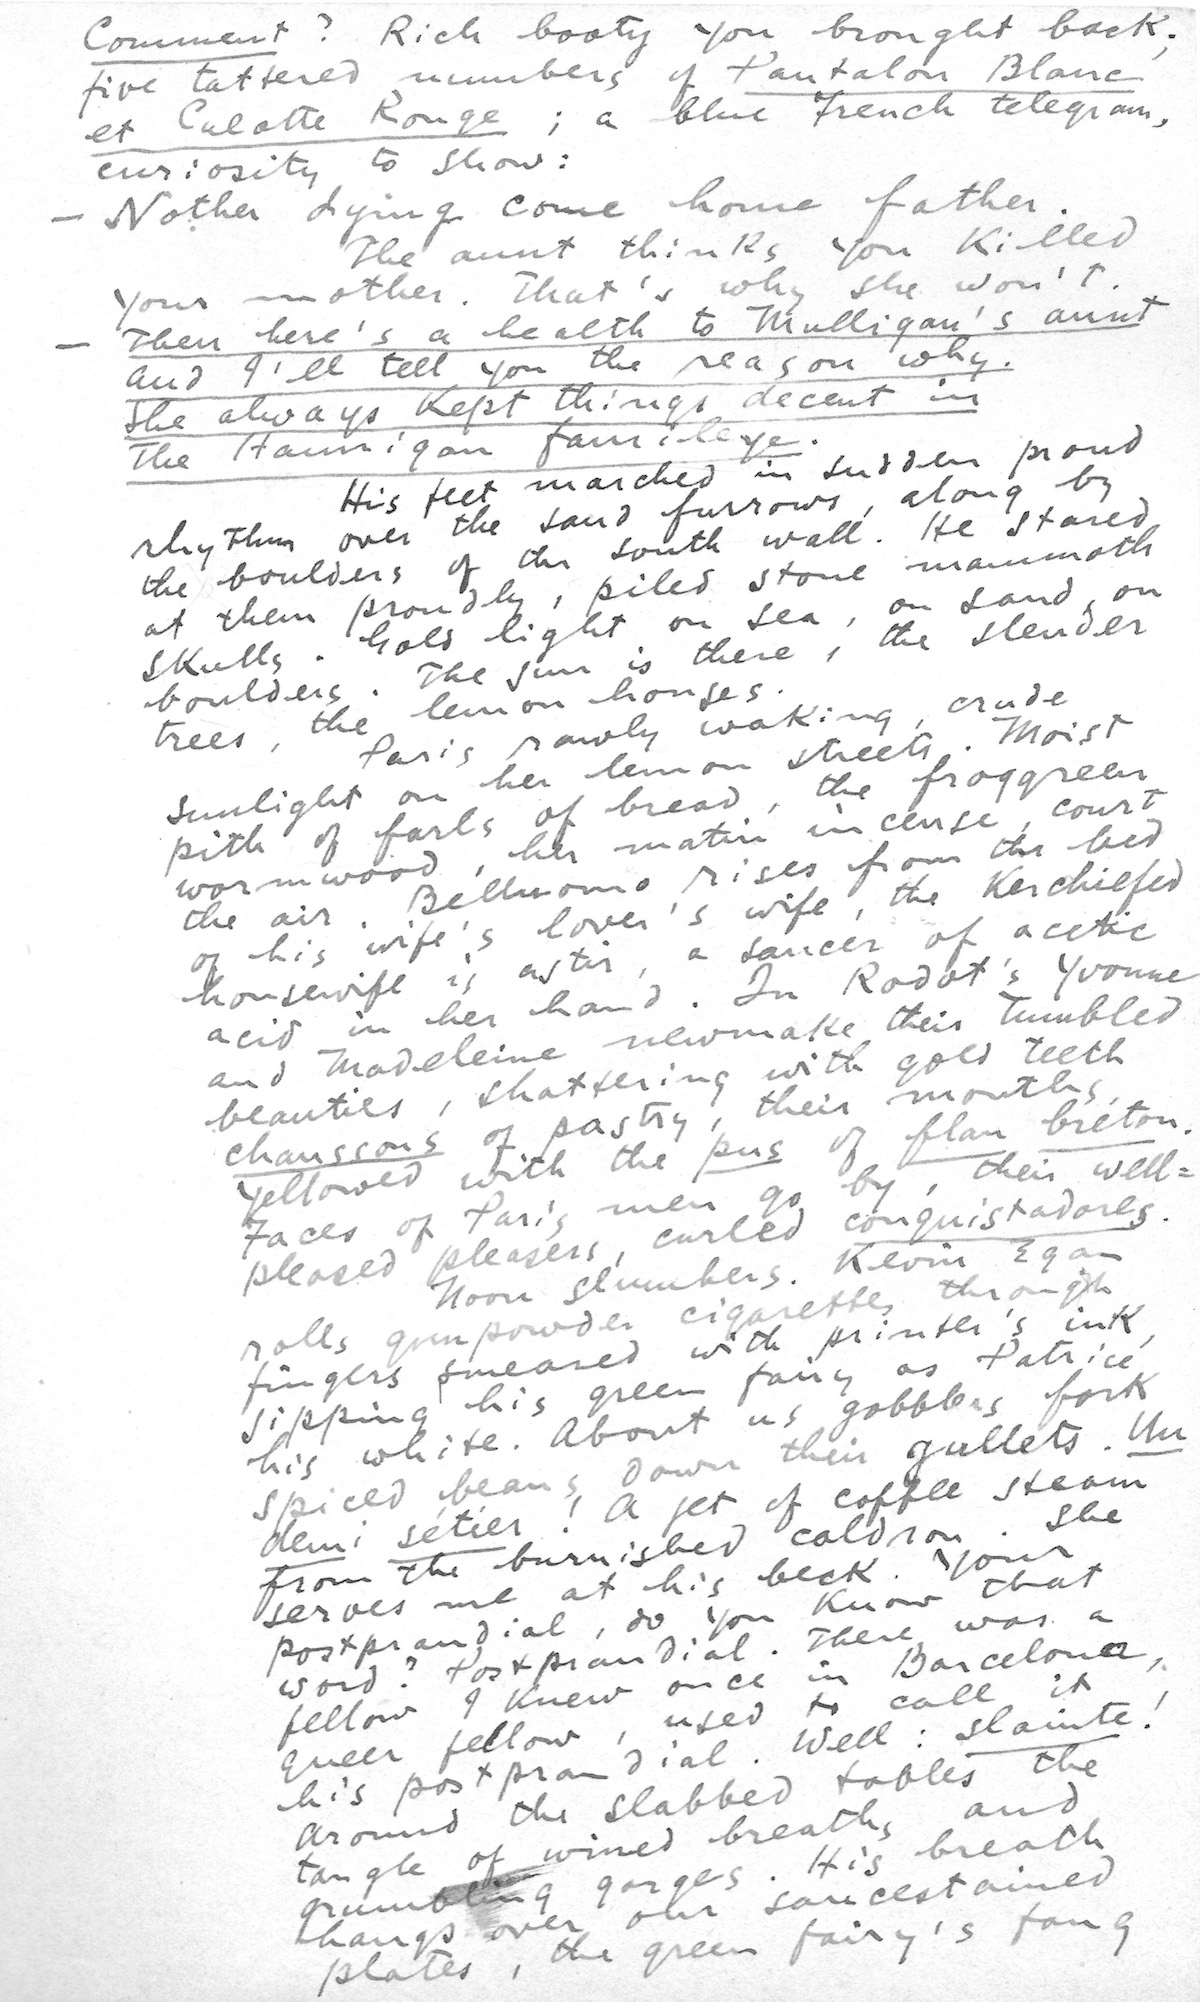 Comment? Rich booty you brought back;
five tattered numbers of Pantalon Blanc
et Culotte Rouge; a blue French telegram,
curiosity to show:
— Nother dying come home father.
The aunt thinks you killed
your mother. That's why she won't.
— Then here's a health to Mulligan's aunt
and I'll tell you the reason why.
She always kept things decent in
The Hannigan famileye.
His feet marched in sudden proud
rhythm over the sand furrows, along by
the boulders of the south wall. He stared
at them proudly, piled stone mammoth
skulls. Gold light on sea, on sand, on
boulders. The sun is there, the slender
trees, the lemon houses.
Paris rawly waking, crude
sunlight on her lemon streets. Moist
pith of farls of bread, the froggreen
wormwood, her matin incense, court
the air. Belluomo rises from the bed
of his wife's lover's wife, the kerchiefed
housewife is astir, a saucer of acetic
acid in her hand. In Rodot's Yvonne
and Madeleine newmake their tumbled
beauties, shattering with gold teeth
chaussons of pastry, their mouths
yellowed with the pus of flan breton.
Faces of Paris men go by, their well=
pleased pleasers, curled conquistadores.
Noon slumbers. Kevin Egan
rolls gunpowder cigarettes through
fingers smeared with printer's ink,
sipping his green fairy as Patrice
his white. About us gobblers fork
spiced beans down their gullets. Un
demi sétier! A jet of coffee steam
from the burnished caldron. She
serves me at his beck. Your
postprandial, do you know that
word? Postprandial. There was a
fellow I knew once in Barcelona,
queer fellow, used to call it
his postprandial. Well: slainte!
Around the slabbed tables the
tangle of wined breaths and
grumbling gorges. His breath
hangs over our saucestained
plates, the green fairy's fang